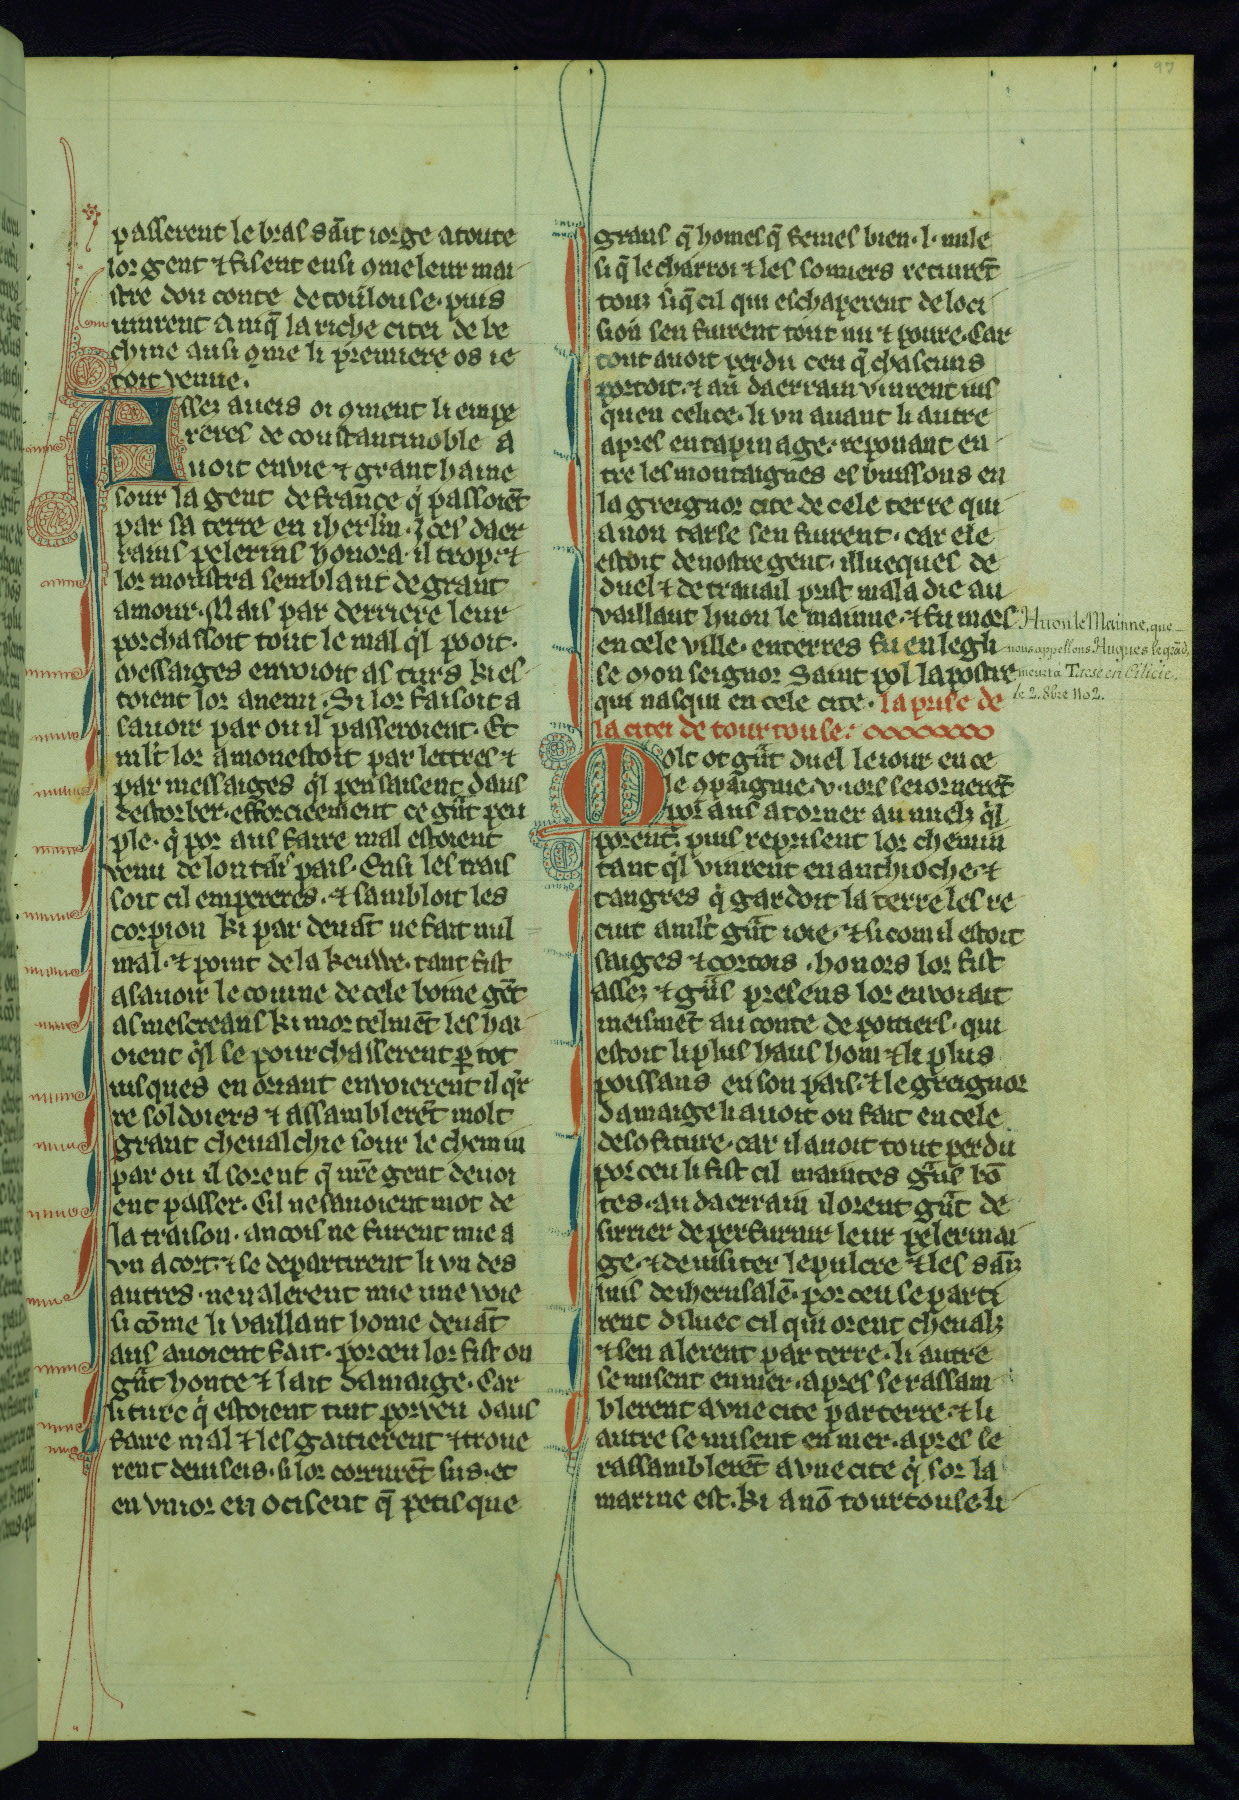 97
passerent le bras sāīt iorge a toute
lor gent ⁊ fisent ensi ꝯme leur mai
stre dou conte de toulouse. puis
uinrent a niq̄ la riche citei de be
thine ausi ꝯme li premiere os ie
toit venue.
Assez aueis oi ꝯment li empe
reres de constantinoble a
uoit envie ⁊ grant haine
sour la gent de france q̇ passoiēt
par sa terre en iherlm̄. ces daer
rains pelerins honora il trop. ⁊
lor monstra semblant de grant
amour. Mais par derriere leur
porchassoit tout le mal q̇l pooit.
Messaiges envoioit as turs ki es
toient lor anemi. Si lor faisoit a
sauoir par ou il passeroient. Et
ml't lor amonestoit par lettres ⁊
par messaiges q̇l pensaisent daus
destorber. efforcieement ce gn̄t peu
ple. q̇ por aus faire mal estoient
venu de lontāī pais. Ensi les trais
soit cil empereres. ⁊ sambloit les
corpion ki par deuāt ne fait nul
mal. ⁊ point de la keuwe. tant fist
a sauoir le couine de cele bonne gēt
as mescreans ki mortelmēt les hai
oient q̇l se pourchasserent ꝑ tot
iusques en oriant envoierent il q̇r
re soldoiers ⁊ assamblerēt molt
grant cheualchie sour le chemin
par ou il sorent q̄ nr̄e gent deuoi
ent passer. Cil ne sauoient mot de
la traison. ancois ne furent mie a
vn acort. ⁊ se departirent li vn des
autres. ne n alerent mie une voie
si cōme li vaillant home deuāt
aus auoient fait. por ceu lor fist on
gn̄t honte ⁊ lait damaige. Car
li turc q̇ estoient tuit porveu daus
faire mal ⁊ les gaitierent ⁊ troue
rent deuiseis. si lor corrurēt sus. et
en vn ior en ocisent q̄ petis que
grans q̄ homes q̄ femes bien .l. mile
si q̄ le charroi ⁊ les somiers retinrēt
touz si q̄ cil qui eschaperent de loci
sion sen fuirent tout nu ⁊ poure. Car
tout auoit perdu ceu q̄ chascuns
portoit. ⁊ au daerrain vinrent ius
quen celice. li vn auant li autre
apres en tapinage. reponant en
tre les montaignes es buissons en
la greignor cite de cele terre qui
a non tarse sen fuirent. car ele
estoit de nostre gent. illueques de
duel ⁊ de trauail prist maladie au
vaillant huon le mainne. ⁊ fu mors
en cele ville. enterres fu en legli
se mon seignor Saint pol lapostre
qui nasqui en cele cite. la prise de
la citei de tourtouse.
Molt ot gn̄t duel le iour en ce
le ꝯpaignie. v iors seiornerēt
por aus atorner au mielz q̇l
porent. puis reprisent lor chemin
tant q̇l vinrent en anthioche. ⁊
tangres q̇ gardoit la terre les re
ciut a ml't gn̄t ioie. ⁊ si com il estoit
saiges ⁊ cortois. honors lor fist
assez ⁊ gn̄s presens lor envoiait
meismēt au conte de poitiers. qui
estoit li plus haus hom ⁊ li plus
poissans en son pais. ⁊ le greignor
damaige li auoit on fait en cele
desofiture. car il auoit tout perdu
por ceu li fist cil maintes gn̄s bō
tes. au daerrain il orent gn̄t de
sirrier de perfurnir leur pelerinai
ge. ⁊ de visiter lepulcre ⁊ les sāīz
luis de iherusalē. por ceu se parti
rent diluec cil qui orent cheualz
⁊ sen alerent par terre. li autre
se misent en mer. apres se rassam
blerent a vne cite par terre. ⁊ li
autre se misent en mer. apres se
rassamblerēt a vne cite q̇ sor la
marine est. ki a nō tourtouse. li
Huon le Mainne, que
nous appellons Hugues le grād,
meurt à Tarse en Cilicie,
le 2. 8bre 1102.